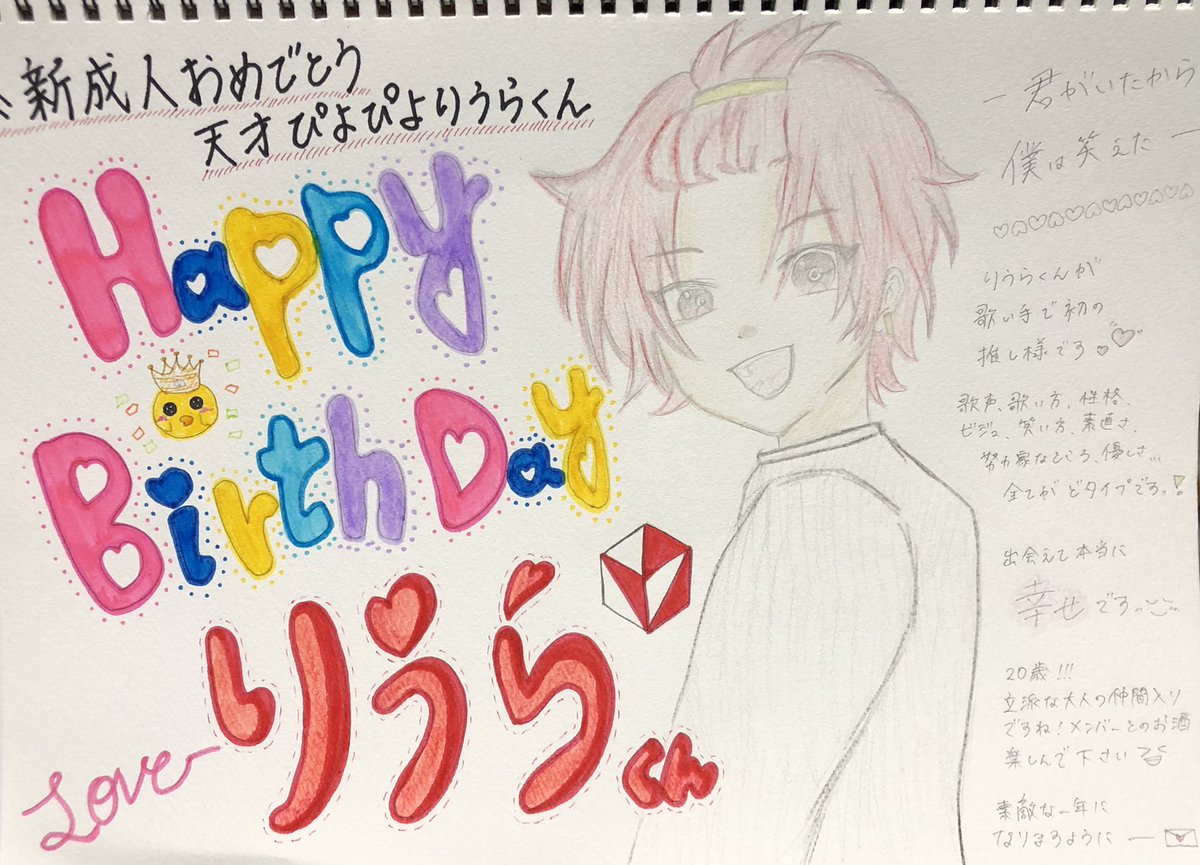 新成人おめでとう
天才ぴよぴよりうらくん
Happy
BirthDay
りうら
くん
Love
― 君がいたから
僕は笑えた ―
りうらくんが
歌い手で初の
推し様です
歌声、歌い方、性格、
ビジュ、笑い方、素直さ、
努力家なところ、優しさ...
全てがどタイプですっ!
出会えて本当に
幸せです
20歳!!!
立派な大人の仲間入り
ですね!メンバーとのお酒
楽しんで下さい
素敵な一年に
なりますように ―